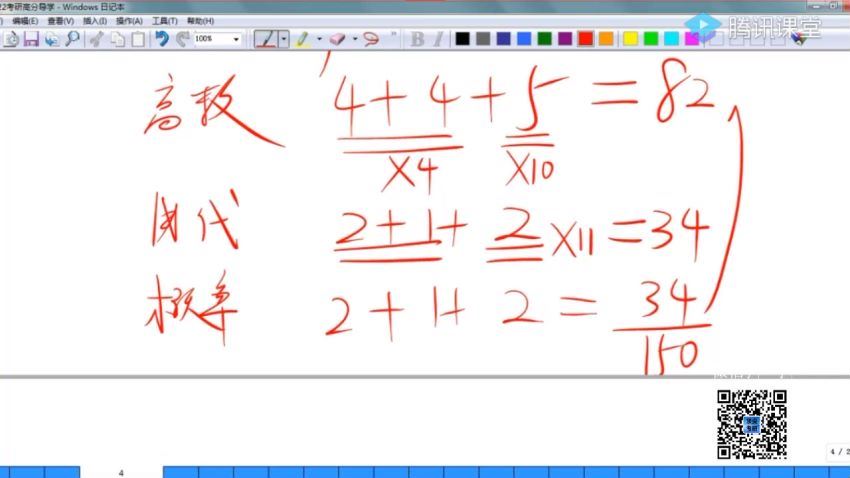 22考研高分导学 - Windows 日记本
编辑(E) 查看(V) 插入(I) 操作(A) 工具(T) 帮助(H)
100%
腾讯课堂
高数 4+4+5=82
×4 ×10
2+1+2×11=34
概率 2+1+2=34
150
4
4 / 2